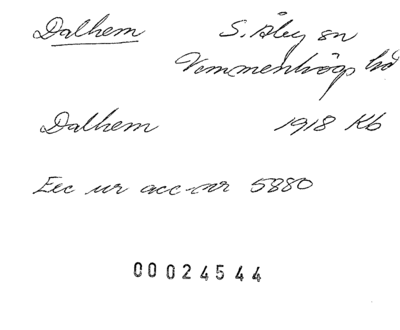 Dalhem S. Åby sn
Vemmenhögs hd
Dalhem 1918 Kb
Exc ur acc-nr 5880
00024544